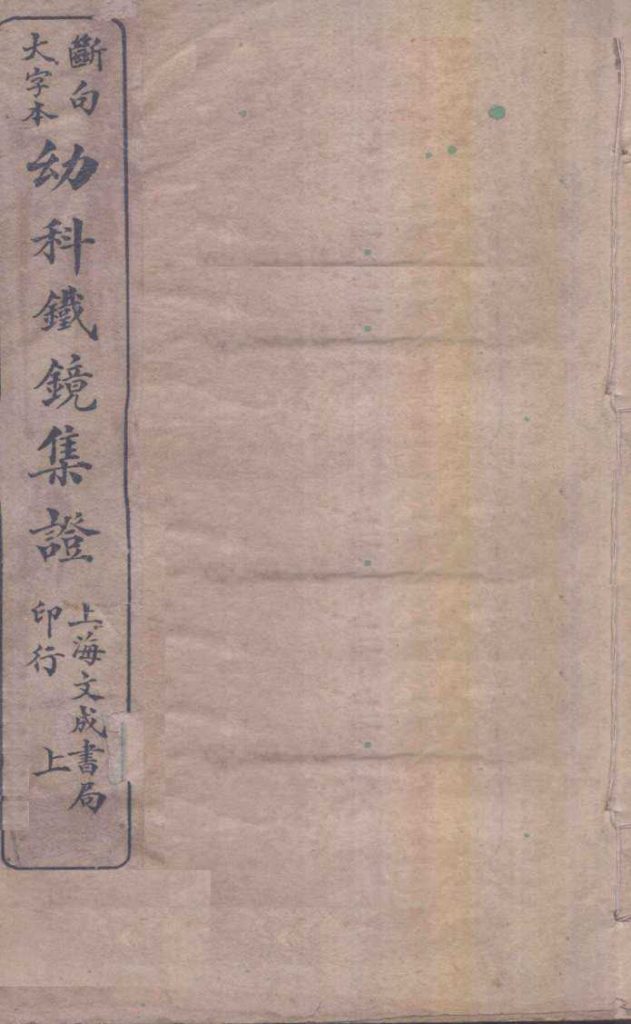 斷句
大字本
幼科鐵鏡集證
上海文成書局
印行
上